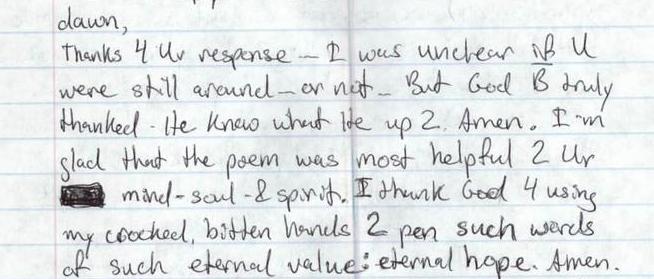 dawn,
Thanks 4 Ur response - I was unclear if U
were still around - or not - But God B truly
thanked - He knew what He up 2. Amen. I'm
glad that the poem was most helpful 2 Ur
mind - soul - & spirit. I thank God 4 using
my crooked, bitten hands 2 pen such words
of such eternal value: eternal hope. Amen.